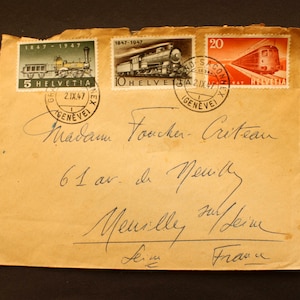 1847-1947
5 HELVETIA
1847-1947
10 HELVETIA
20
HELVETIA
2.IX.47
(GENÈVE)
2.IX.47
(GENÈVE)
Madame Foucher-Creteau
61 av. de Neuilly
Neuilly sur Seine
Seine France